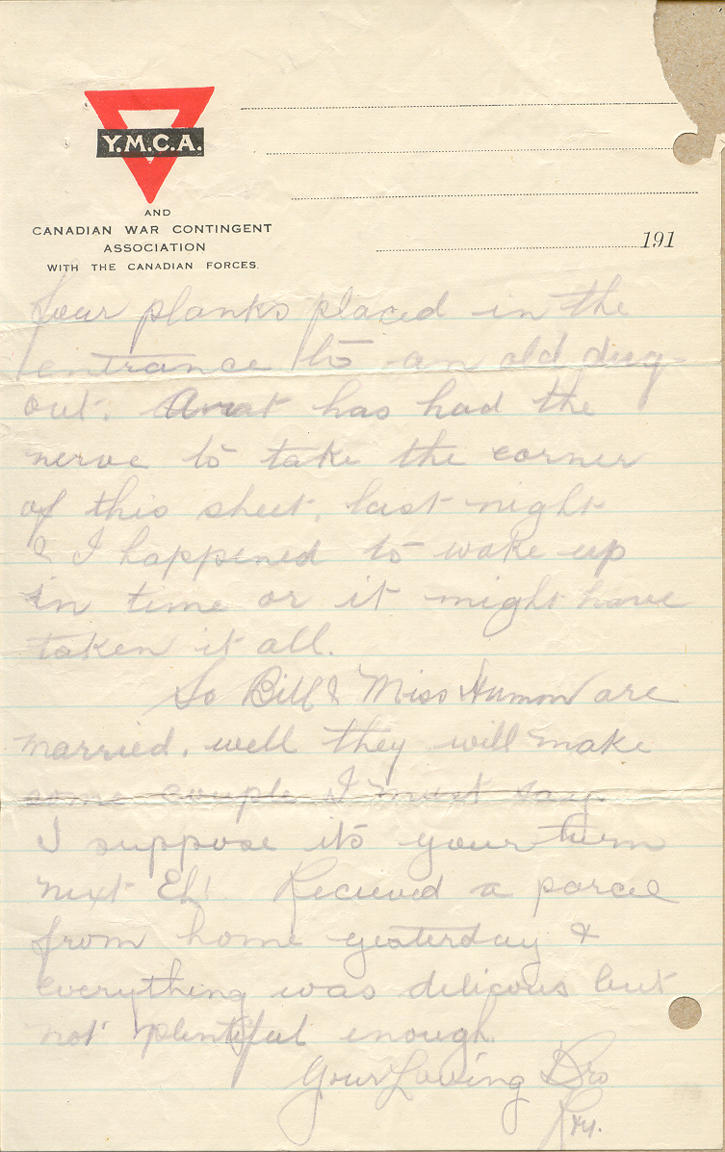 Y.M.C.A.
AND
CANADIAN WAR CONTINGENT
ASSOCIATION
WITH THE CANADIAN FORCES.
191
four planks placed in the
entrance to an old dug-
out. A rat has had the
nerve to take the corner
of this sheet, last night
& I happened to wake up
in time or it might have
taken it all.
So Bill & Miss are
married, well they will make
some couple I must say.
I suppose its your turn
next Eh! Recieved a parcel
from home yesterday &
everything was delicous but
not plentiful enough
Your Loving Bro